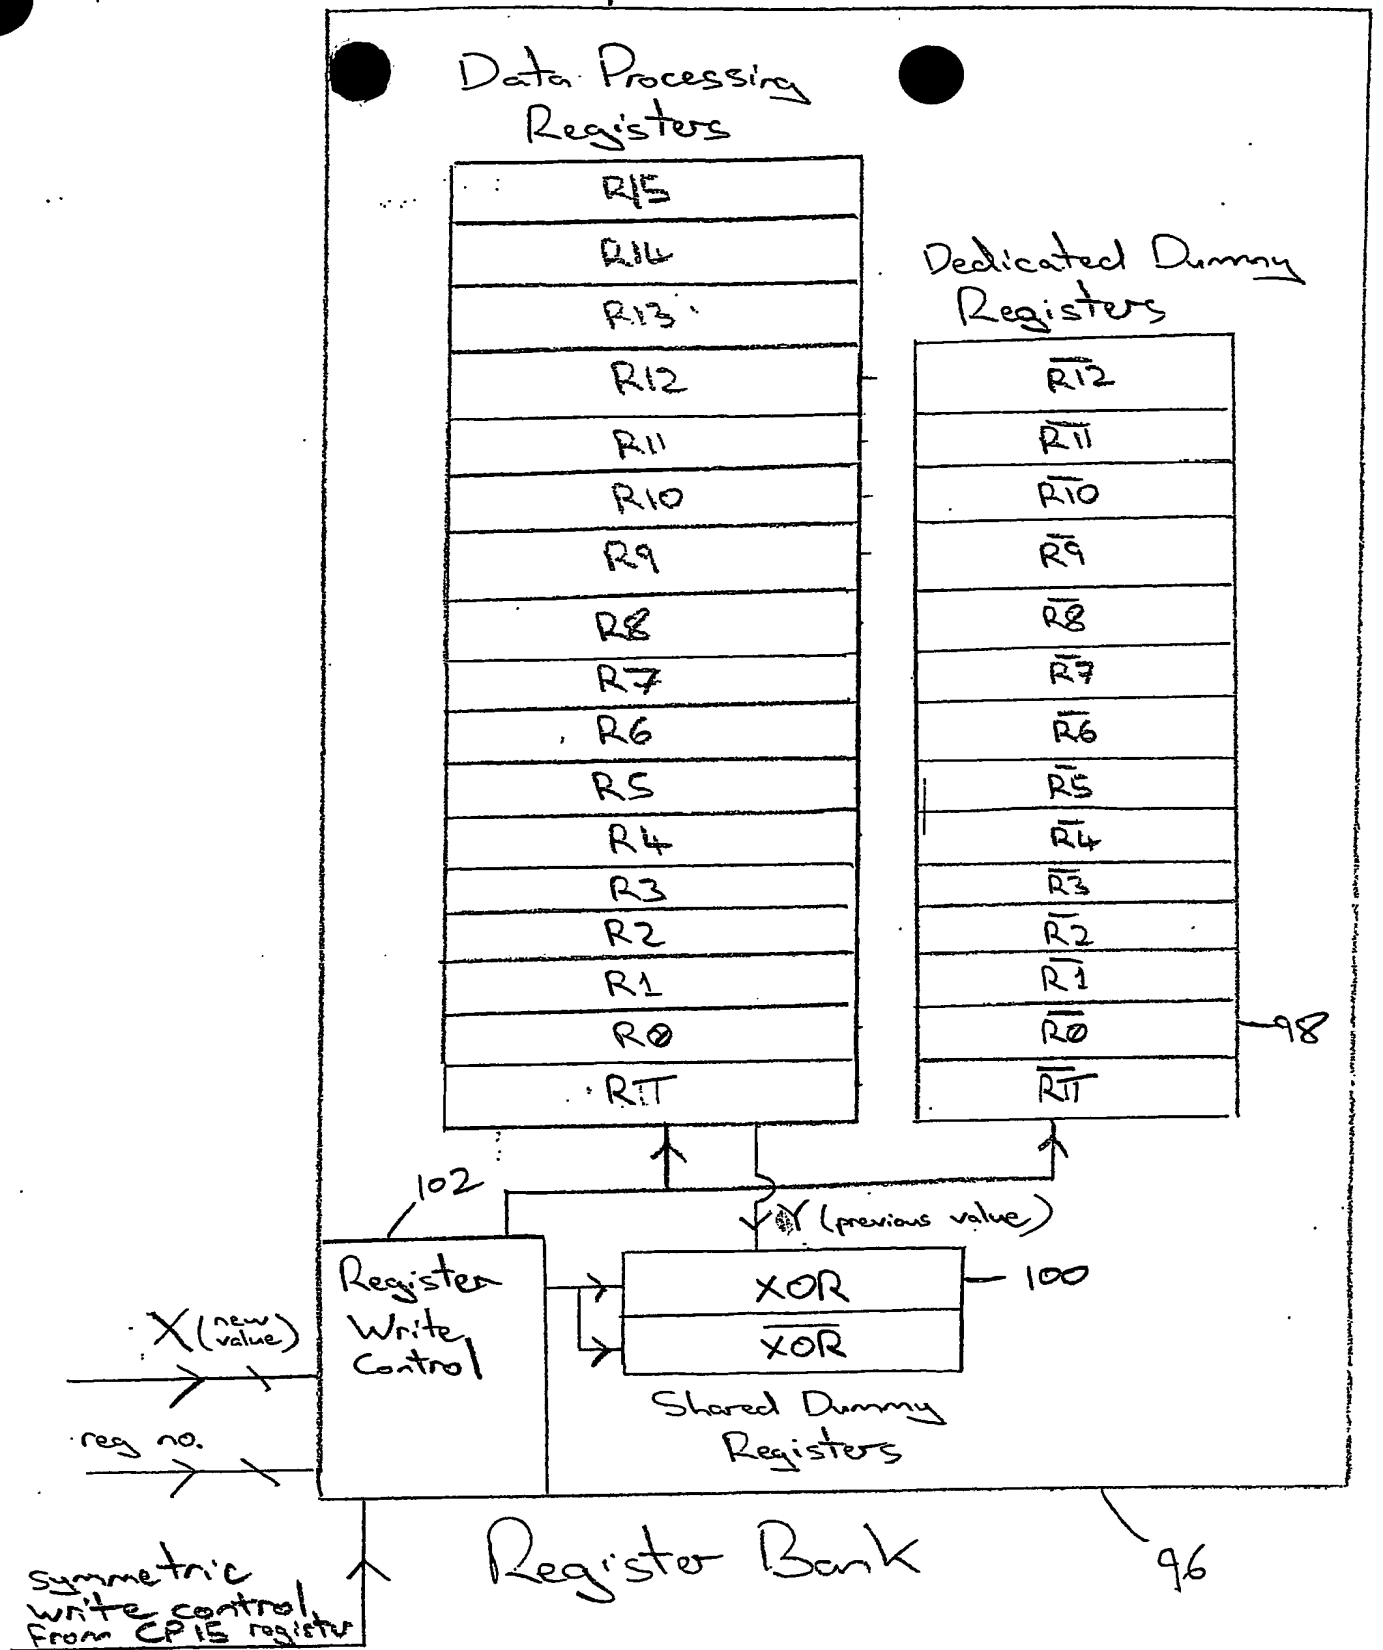 Data Processing
Registers
R15
R14
R13
R12
R11
R10
R9
R8
R7
R6
R5
R4
R3
R2
R1
R0
RTT
Dedicated Dummy
Registers
R̅1̅2̅
R̅1̅1̅
R̅1̅0̅
R̅9̅
R̅8̅
R̅7̅
R̅6̅
R̅5̅
R̅4̅
R̅3̅
R̅2̅
R̅1̅
R̅0̅
R̅T̅T̅
98
102
Y (previous value)
Register
Write
Control
XOR
X̅O̅R̅
100
Shared Dummy
Registers
X (new value)
reg no.
symmetric
write control
from CP15 register
Register Bank
96